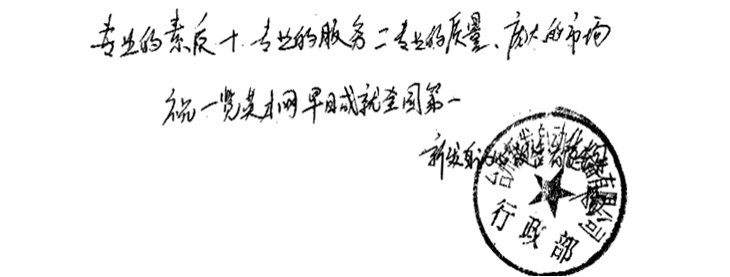 专业的素质+专业的服务=专业的质量、庞大的市场
祝一览英才网早日成就全国第一
新发
有限公司
行政部